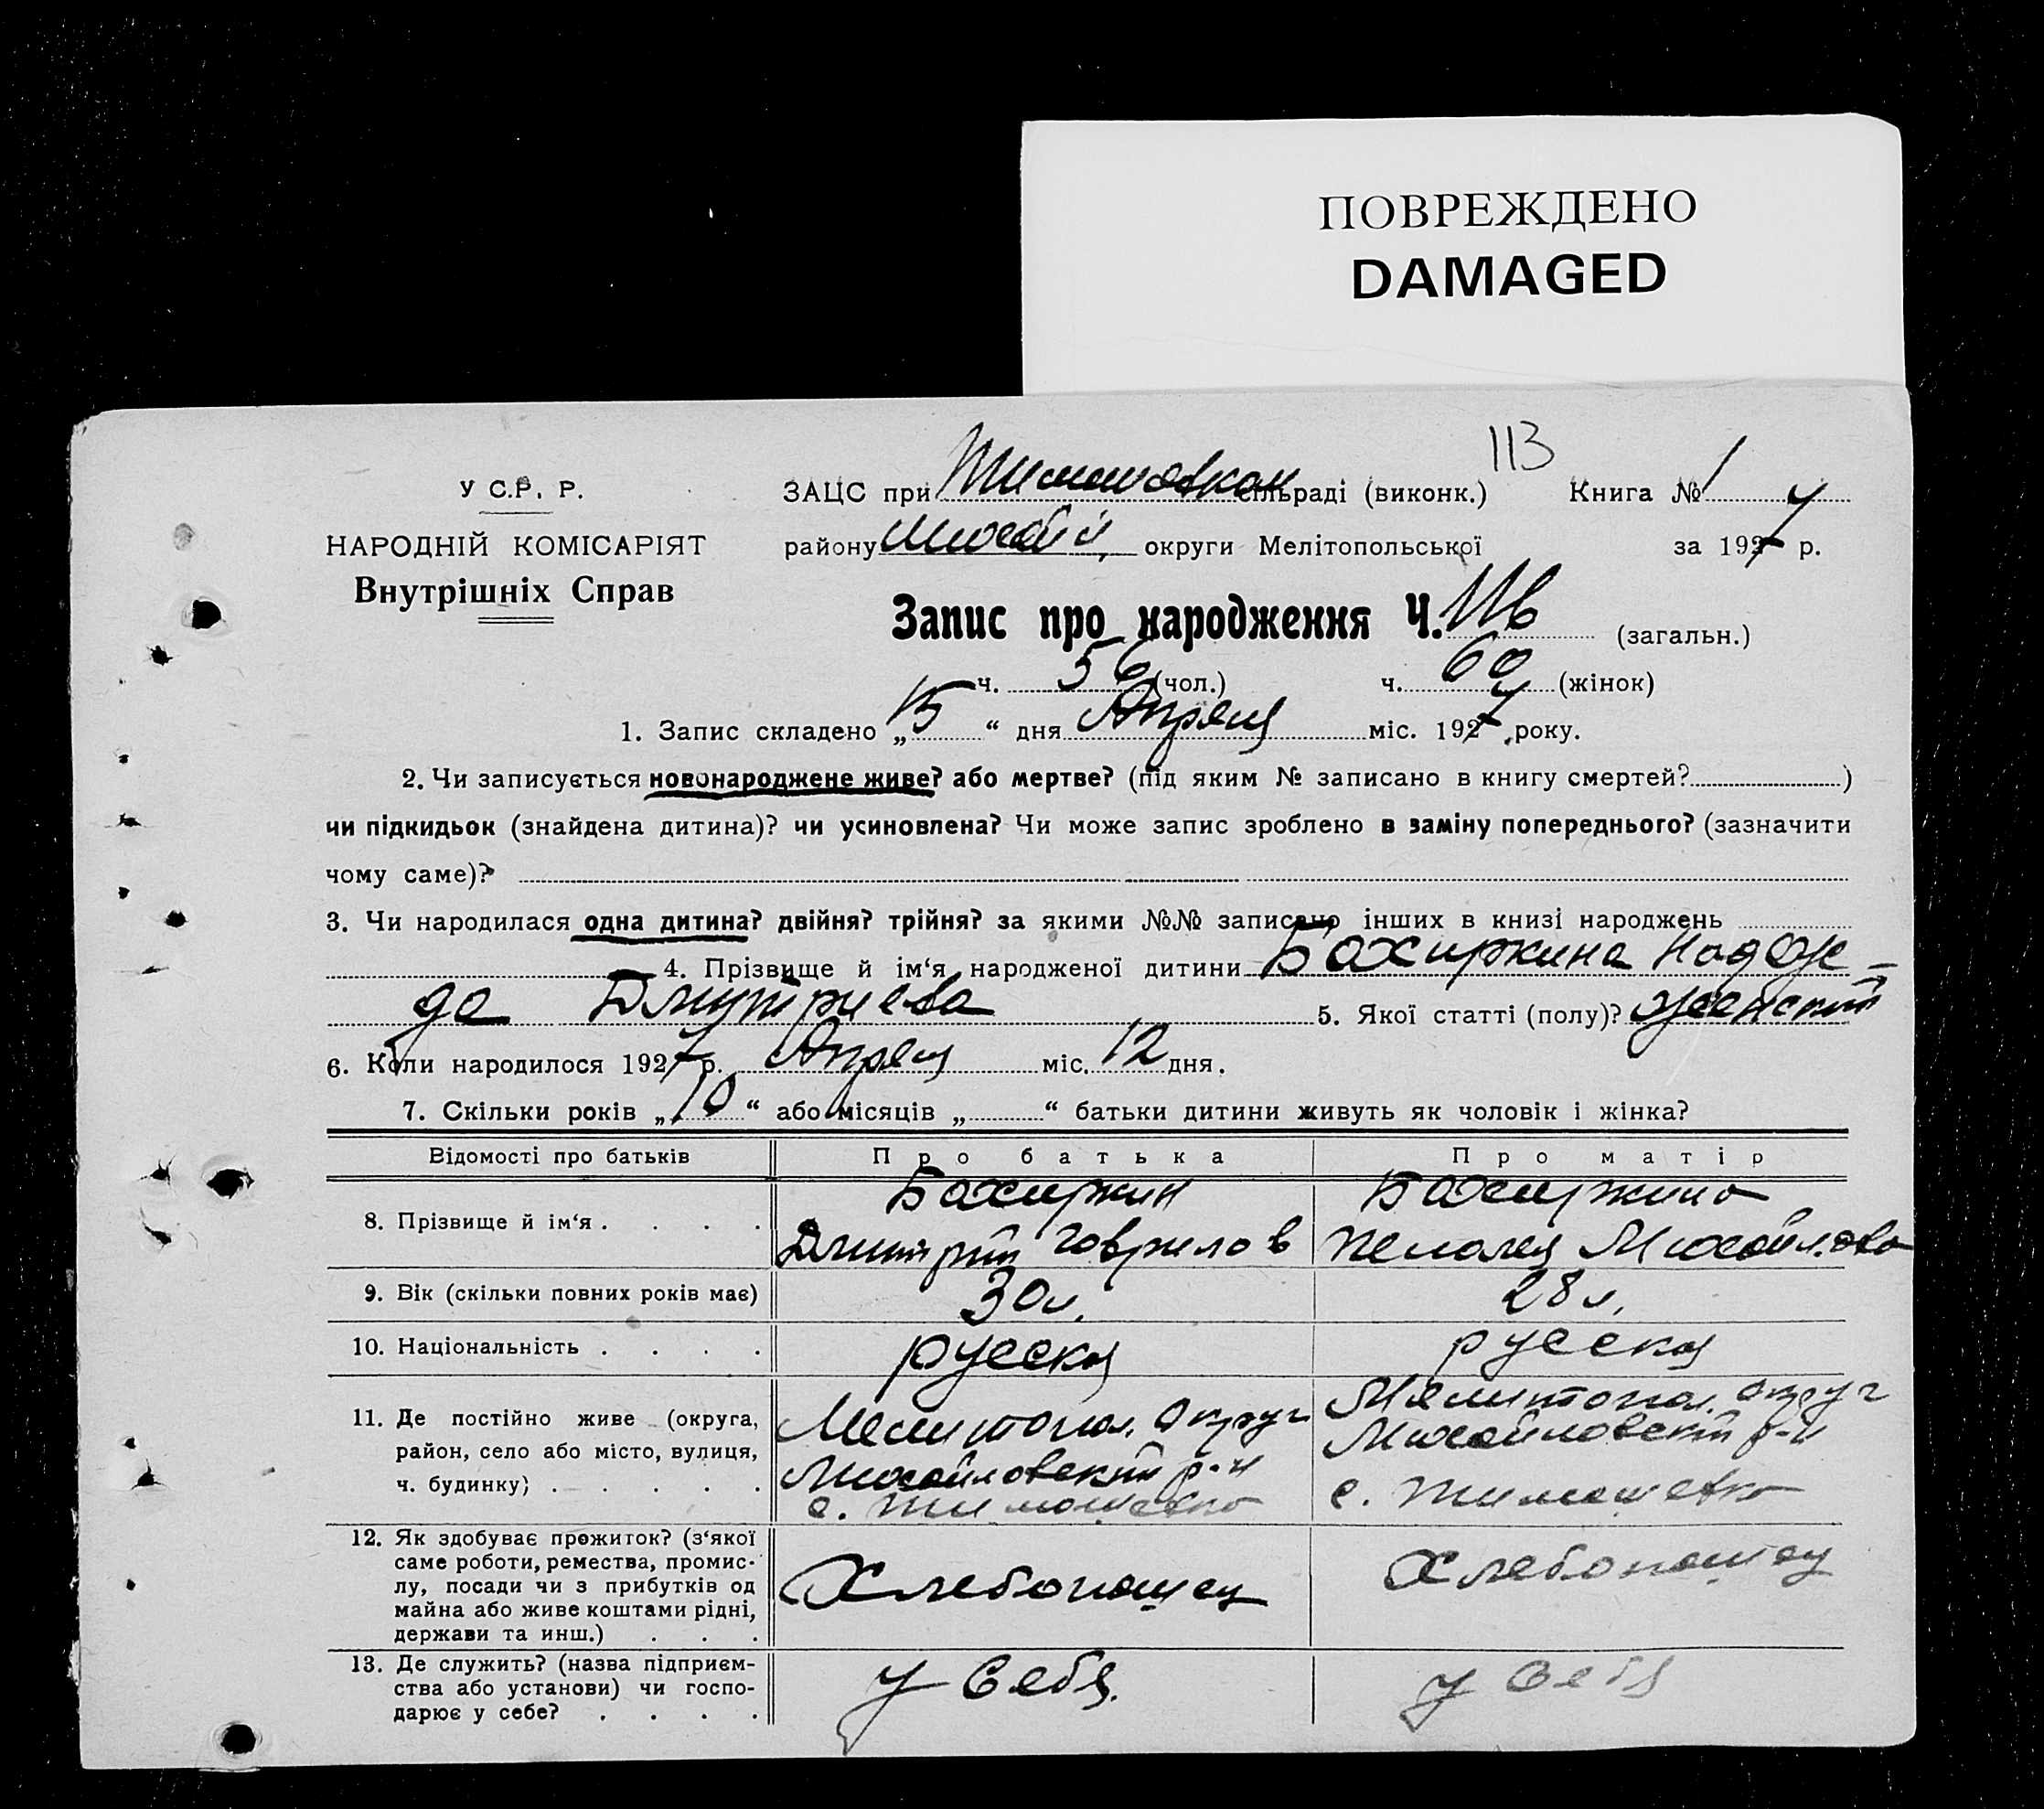 ПОВРЕЖДЕНО
DAMAGED
113
У С.Р. Р.
НАРОДНІЙ КОМІСАРІЯТ
Внутрішніх Справ
ЗАЦС при Тимошовкой сільраді (виконк.) Книга № 1
району Михай округи Мелітопольської за 1927 р.
Запис про народження Ч. 116 (загальн.)
ч. 56 (чол.) ч. 60 (жінок)
1. Запис складено „ 15 “ дня Апреля міс. 1927 року.
2. Чи записується новонароджене живе? або мертве? (під яким № записано в книгу смертей? )
чи підкидьок (знайдена дитина)? чи усиновлена? Чи може запис зроблено в заміну попереднього? (зазначити
чому саме)?
3. Чи народилася одна дитина? двійня? трійня? за якими №№ записано інших в книзі народжень
4. Прізвище й ім‘я народженої дитини Бахиркина Надеж-
да Дмитриева 5. Якої статті (полу)? женский
6. Коли народилося 1927 р. Апреля міс. 12 дня.
7. Скільки років „ 10 “ або місяців „ “ батьки дитини живуть як чоловік і жінка?
Відомості про батьків Про батька Про матір
8. Прізвище й ім‘я . . . . Бахиркин Бахиркина
Дмитрий Гаврилов Пелагея Михайлова
9. Вік (скільки повних років має) 30 л. 28 л.
10. Національність . . . . русская русская
11. Де постійно живе (округа, район, село або місто, вулиця, ч. будинку) . . . . .
Мелитопол. округ Мелитопол. округ
Михайловский р-н Михайловский р-н
с. Тимошевка с. Тимошевка
12. Як здобуває прожиток? (з‘якої
саме роботи, ремества, промис-
лу, посади чи з прибутків од
майна або живе коштами рідні,
держави та инш.) . . .
Хлебопашец Хлебопашец
13. Де служить? (назва підприєм-
ства або установи) чи госпо-
дарює у себе? . . . .
У Себя. У Себя